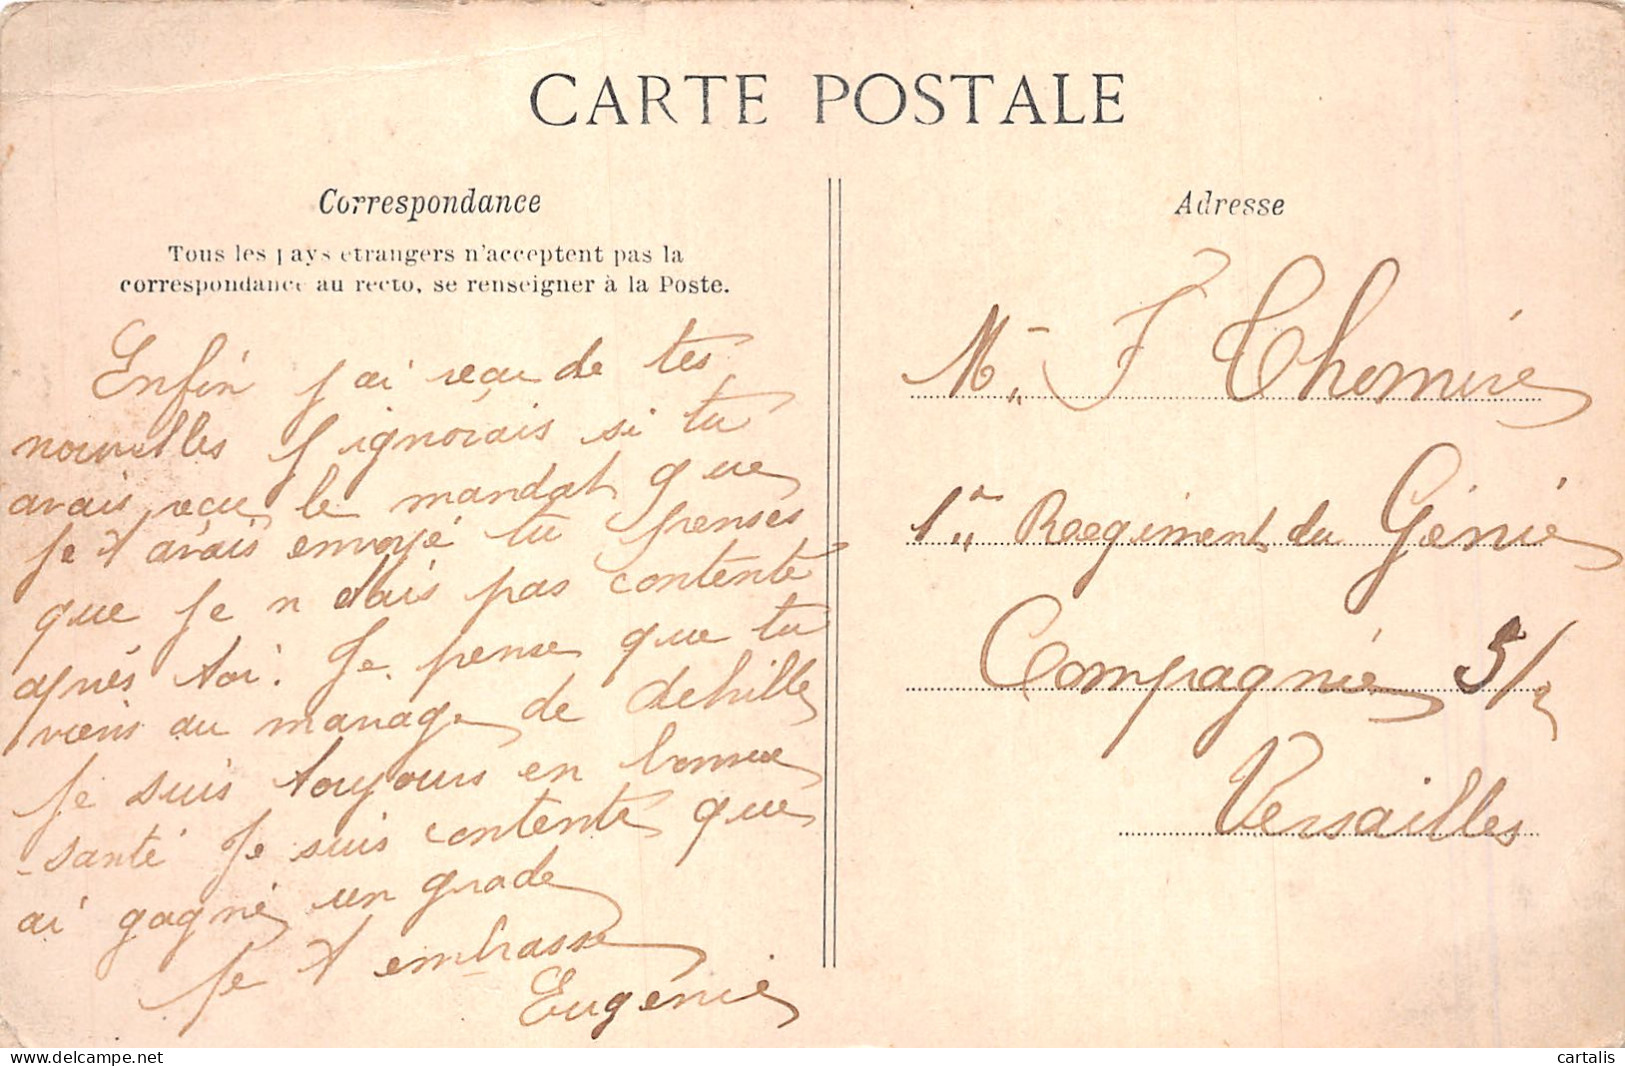 CARTE POSTALE
Correspondance
Tous les pays etrangers n'acceptent pas la
correspondance au recto, se renseigner à la Poste.
Enfin j'ai reçu de tes
nouvelles j ignorais si tu
avais reçu le mandat que
je t avais envoyé tu penses
que je n etais pas contente
après toi. Je pense que tu
viens au mariage de
Je suis toujours en bonne
santé Je suis contente que
ai gagné un grade
Je t embrasse
Eugénie
Adresse
Mr. F Thomire
1er Raegiment du Génie
Compagnie 5/2
Versailles
cartalis